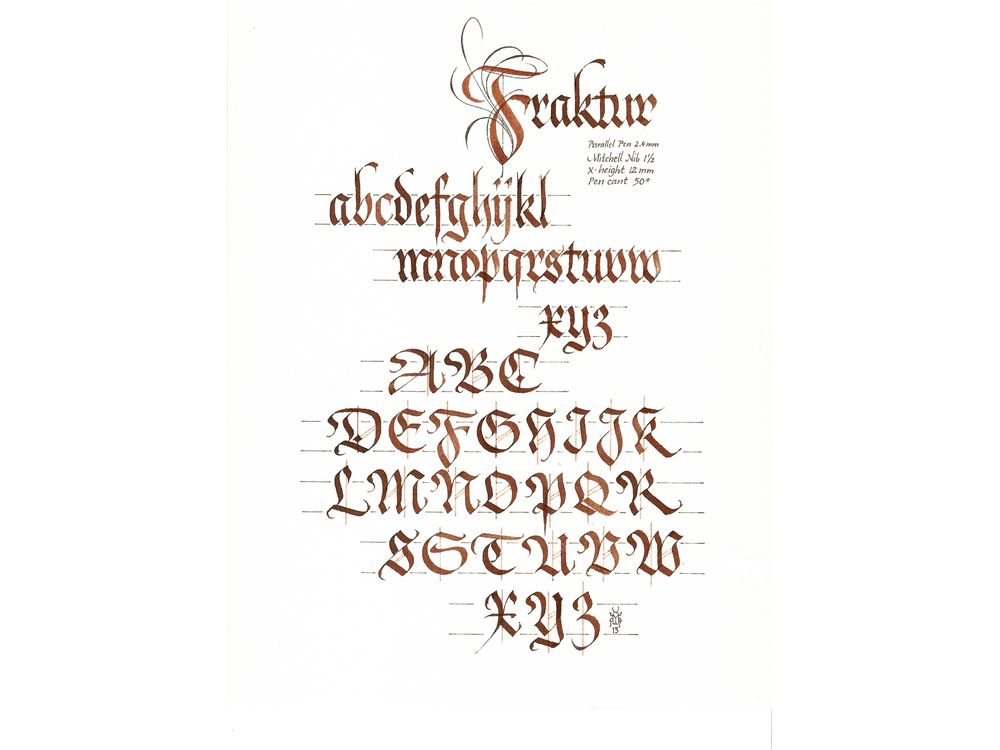 Fraktur
Parallel Pen 2.4mm
Mitchell Nib 1½
x-height 12mm
Pen cant 50°
abcdefghijkl
mnopqrstuvw
xyz
ABC
DEFGHIJK
LMNOPQR
SSTUVW
XYZ
13